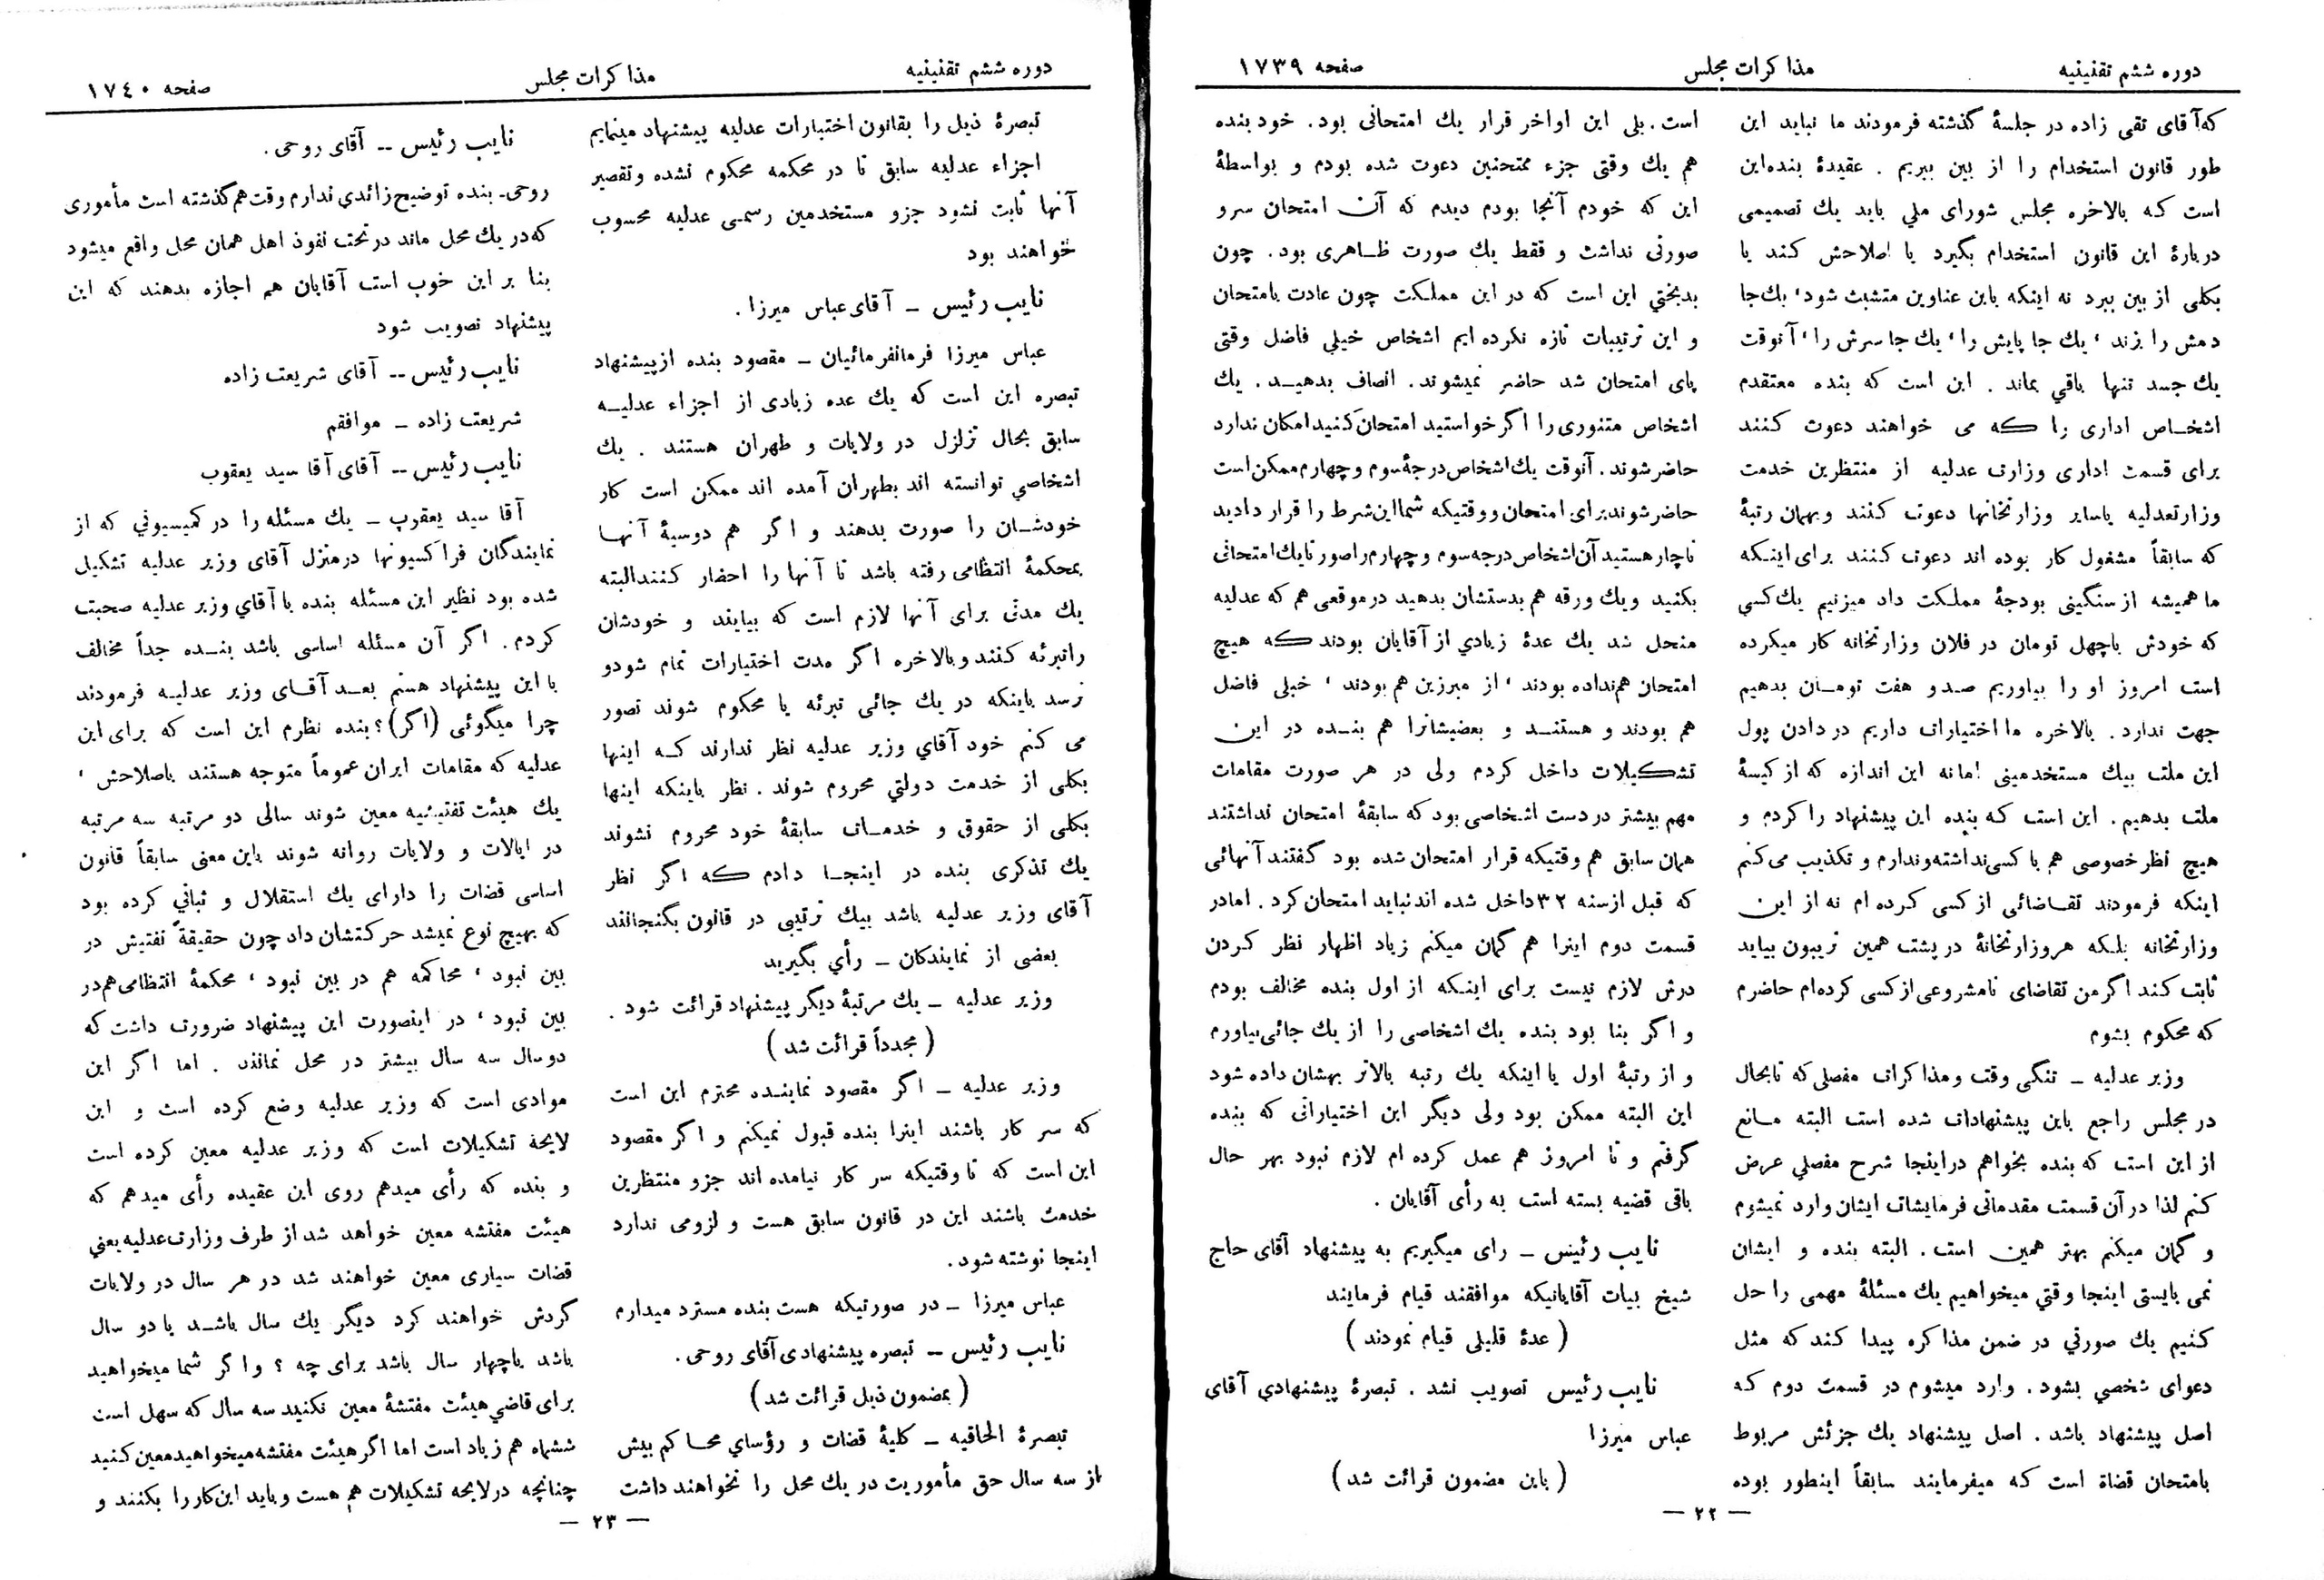 دوره ششم تقنینیه
مذاکرات مجلس
صفحه ۱۷۳۹
که آقای تقی زاده در جلسهٔ گذشته فرمودند ما نباید این
طور قانون استخدام را از بین ببریم . عقیدهٔ بنده این
است که بالاخره مجلس شورای ملی باید یك تصمیمی
دربارهٔ این قانون استخدام بگیرد یا اصلاحش کند یا
بکلی از بین ببرد نه اینکه باین عناوین متشبث شود، یك جا
دمش را بزند ، یك جا پایش را ، یك جا سرش را ، آنوقت
یك جسد تنها باقی بماند . این است که بنده معتقدم
اشخاص اداری را که می خواهند دعوت کنند
برای قسمت اداری وزارت عدلیه از منتظرین خدمت
وزارتعدلیه یاسایر وزارتخانها دعوت کنند وبهمان رتبهٔ
که سابقاً مشغول کار بوده اند دعوت کنند برای اینکه
ما همیشه از سنگینی بودجهٔ مملکت داد میزنیم یك کسی
که خودش باچهل تومان در فلان وزارتخانه کار میکرده
است امروز او را بیاوریم صدو هفت تومان بدهیم
جهت ندارد . بالاخره ما اختیارات داریم در دادن پول
این ملت بیك مستخدمینی امانه این اندازه که از کیسهٔ
ملت بدهیم . این است که بنده این پیشنهاد را کردم و
هیچ نظر خصوصی هم با کسی نداشته وندارم و تکذیب می کنم
اینکه فرمودند تقاضائی از کسی کرده ام نه از این
وزارتخانه بلکه هروزارتخانهٔ در پشت همین تریبون بیاید
ثابت کند اگر من تقاضای نامشروعی از کسی کرده ام حاضرم
که محکوم بشوم
وزیر عدلیه ـ تنگی وقت ومذاکرات مفصلی که تابحال
در مجلس راجع باین پیشنهادات شده است البته مانع
از این است که بنده بخواهم دراینجا شرح مفصلی عرض
کنم لذا در آن قسمت مقدماتی فرمایشات ایشان وارد نمیشوم
و گمان میکنم بهتر همین است . البته بنده و ایشان
نمی بایستی اینجا وقتی میخواهیم یك مسئلهٔ مهمی را حل
کنیم یك صورتی در ضمن مذاکره پیدا کند که مثل
دعوای شخصی بشود . وارد میشوم در قسمت دوم که
اصل پیشنهاد باشد . اصل پیشنهاد یك جزئش مربوط
بامتحان قضاة است که میفرمایند سابقاً اینطور بوده
است . بلی این اواخر قرار یك امتحانی بود . خود بنده
هم یك وقتی جزء ممتحنین دعوت شده بودم و بواسطهٔ
این که خودم آنجا بودم دیدم که آن امتحان سرو
صورتی نداشت و فقط یك صورت ظاهری بود . چون
بدبختی این است که در این مملکت چون عادت بامتحان
و این ترتیبات تازه نکرده ایم اشخاص خیلی فاضل وقتی
پای امتحان شد حاضر نمیشوند . انصاف بدهید . یك
اشخاص متنوری را اگر خواستید امتحان کنید امکان ندارد
حاضر شوند . آنوقت یك اشخاص درجهٔ سوم وچهارم ممکن است
حاضر شوند برای امتحان ووقتیکه شما این شرط را قرار دادید
ناچار هستید آن اشخاص درجه سوم وچهارم را صورتا یك امتحانی
بکنید ویك ورقه هم بدستشان بدهید درموقعی هم که عدلیه
منحل شد یك عدهٔ زیادی از آقایان بودند که هیچ
امتحان هم نداده بودند ، از مبرزین هم بودند ، خیلی فاضل
هم بودند و هستند و بعضیشانرا هم بنده در این
تشکیلات داخل کردم ولی در هر صورت مقامات
مهم بیشتر در دست اشخاصی بود که سابقهٔ امتحان نداشتند
همان سابق هم وقتیکه قرار امتحان شده بود گفتند آنهائی
که قبل از سنه ۳۲ داخل شده اند نباید امتحان کرد . امادر
قسمت دوم اینرا هم گمان میکنم زیاد اظهار نظر کردن
درش لازم نیست برای اینکه از اول بنده مخالف بودم
و اگر بنا بود بنده یك اشخاصی را از یك جائی بیاورم
و از رتبهٔ اول یا اینکه یك رتبه بالاتر بهشان داده شود
این البته ممکن بود ولی دیگر این اختیاراتی که بنده
گرفتم و تا امروز هم عمل کرده ام لازم نبود بهر حال
باقی قضیه بسته است به رأی آقایان .
نایب رئیس ـ رای میگیریم به پیشنهاد آقای حاج
شیخ بیات آقایانیکه موافقند قیام فرمایند
( عدهٔ قلیلی قیام نمودند )
نایب رئیس تصویب نشد . تبصرهٔ پیشنهادی آقای
عباس میرزا
( باین مضمون قرائت شد )
— ۲۲ —
دوره ششم تقنینیه
مذاکرات مجلس
صفحه ۱۷٤۰
تبصرهٔ ذیل را بقانون اختیارات عدلیه پیشنهاد مینمایم
اجزاء عدلیه سابق تا در محکمه محکوم نشده وتقصیر
آنها ثابت نشود جزو مستخدمین رسمی عدلیه محسوب
خواهند بود
نایب رئیس ـ آقای عباس میرزا .
عباس میرزا فرمانفرمائیان ـ مقصود بنده از پیشنهاد
تبصره این است که یك عده زیادی از اجزاء عدلیه
سابق بحال تزلزل در ولایات و طهران هستند . یك
اشخاصی توانسته اند بطهران آمده اند ممکن است کار
خودشان را صورت بدهند و اگر هم دوسیهٔ آنها
بمحکمهٔ انتظامی رفته باشد تا آنها را احضار کنندالبته
یك مدتی برای آنها لازم است که بیایند و خودشان
راتبرئه کنند و بالاخره اگر مدت اختیارات تمام شودو
نرسد باینکه در یك جائی تبرئه یا محکوم شوند تصور
می کنم خود آقای وزیر عدلیه نظر ندارند که اینها
بکلی از خدمت دولتی محروم شوند . نظر باینکه اینها
بکلی از حقوق و خدمات سابقهٔ خود محروم نشوند
یك تذکری بنده در اینجا دادم که اگر نظر
آقای وزیر عدلیه باشد بیك ترتیبی در قانون بگنجانند
بعضی از نمایندکان ـ رأی بگیرید
وزیر عدلیه ـ یك مرتبهٔ دیگر پیشنهاد قرائت شود .
( مجدداً قرائت شد )
وزیر عدلیه ـ اگر مقصود نماینده محترم این است
که سر کار باشند اینرا بنده قبول نمیکنم و اگر مقصود
این است که تا وقتیکه سر کار نیامده اند جزو منتظرین
خدمت باشند این در قانون سابق هست و لزومی ندارد
اینجا نوشته شود .
عباس میرزا ـ در صورتیکه هست بنده مسترد میدارم
نایب رئیس ـ تبصره پیشنهادی آقای روحی .
( بمضمون ذیل قرائت شد )
تبصرهٔ الحاقیه ـ کلیهٔ قضات و رؤسای محاکم بیش
از سه سال حق مأموریت در یك محل را نخواهند داشت
نایب رئیس -- آقای روحی .
روحی- بنده توضیح زائدی ندارم وقت هم گذشته است مأموری
که در یك محل ماند در تحت نفوذ اهل همان محل واقع میشود
بنا بر این خوب است آقایان هم اجازه بدهند که این
پیشنهاد تصویب شود
نایب رئیس -- آقای شریعت زاده
شریعت زاده ـ موافقم
نایب رئیس -- آقای آقا سید یعقوب
آقا سید یعقوب ـ یك مسئله را در کمیسیونی که از
نمایندگان فراکسیونها درمنزل آقای وزیر عدلیه تشکیل
شده بود نظیر این مسئله بنده با آقای وزیر عدلیه صحبت
کردم . اگر آن مسئله اساسی باشد بنده جداً مخالف
با این پیشنهاد هستم بعد آقای وزیر عدلیه فرمودند
چرا میگوئی (اگر) ؟ بنده نظرم این است که برای این
عدلیه که مقامات ایران عموماً متوجه هستند باصلاحش ،
یك هیئت تفتیشیه معین شوند سالی دو مرتبه سه مرتبه
در ایالات و ولایات روانه شوند باین معنی سابقاً قانون
اساسی قضات را دارای یك استقلال و ثباتی کرده بود
که بهیچ نوع نمیشد حرکتشان داد چون حقیقةً تفتیش در
بین نبود ، محاکمه هم در بین نبود ، محکمهٔ انتظامی هم در
بین نبود ، در اینصورت این پیشنهاد ضرورت داشت که
دوسال سه سال بیشتر در محل نمانند . اما اگر این
موادی است که وزیر عدلیه وضع کرده است و این
لایحهٔ تشکیلات است که وزیر عدلیه معین کرده است
و بنده که رأی میدهم روی این عقیده رأی میدهم که
هیئت مفتشه معین خواهد شد از طرف وزارت عدلیه یعنی
قضات سیاری معین خواهند شد در هر سال در ولایات
گردش خواهند کرد دیگر یك سال باشد یا دو سال
باشد یاچهار سال باشد برای چه ؟ و اگر شما میخواهید
برای قاضی هیئت مفتشهٔ معین نکنید سه سال که سهل است
ششماه هم زیاد است اما اگر هیئت مفتشه میخواهید معین کنید
چنانچه در لایحه تشکیلات هم هست و باید این کار را بکنند و
— ۲۳ —